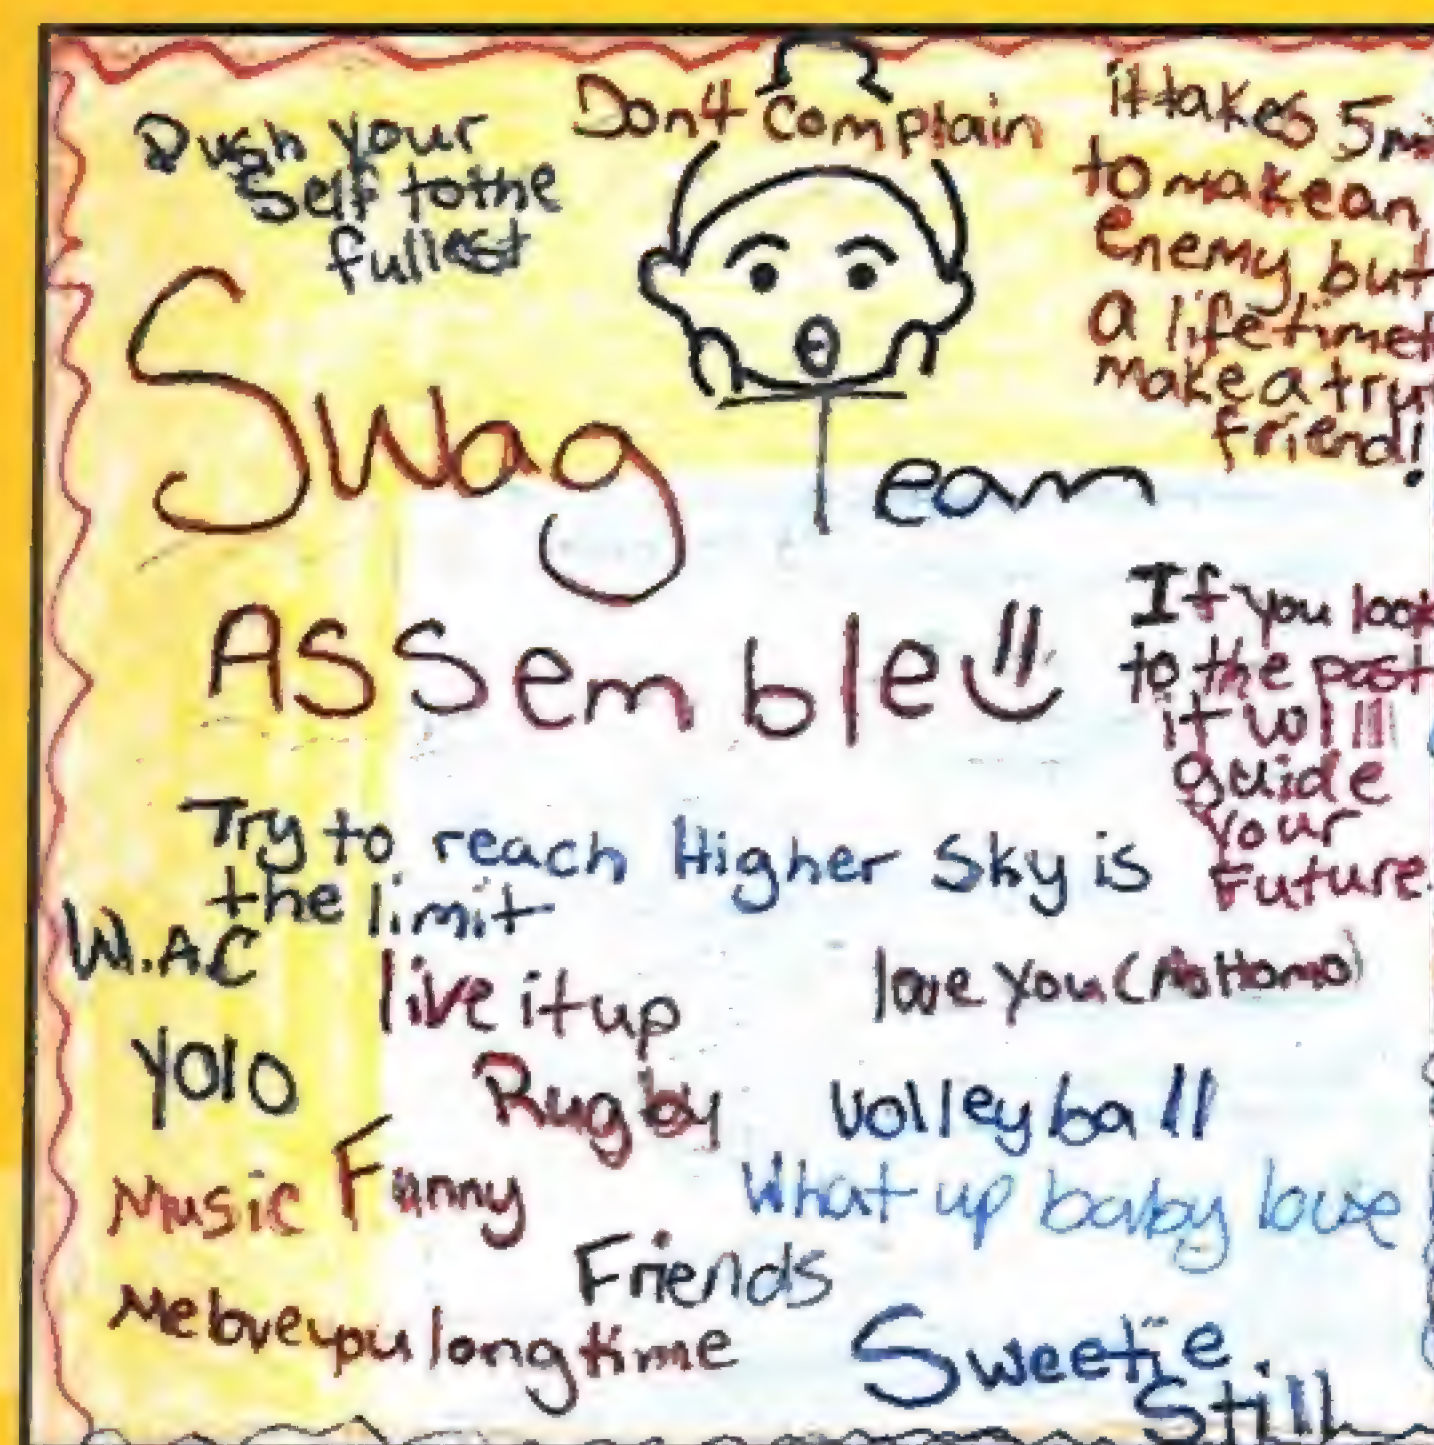 Push your
Self to the
fullest
Don4 Complain
it takes 5
to make an
enemy but
a lifetime
make a
friend!
Swag Team
Assemble
If you look
to the past
it will
guide
your
Future.
Try to reach Higher Sky is
the limit
W.A.C
live it up
love you (No Homo)
yolo
Rugby
Volleyball
Music Funny
What up baby love
Friends
Me love you long time
Sweetie
Still